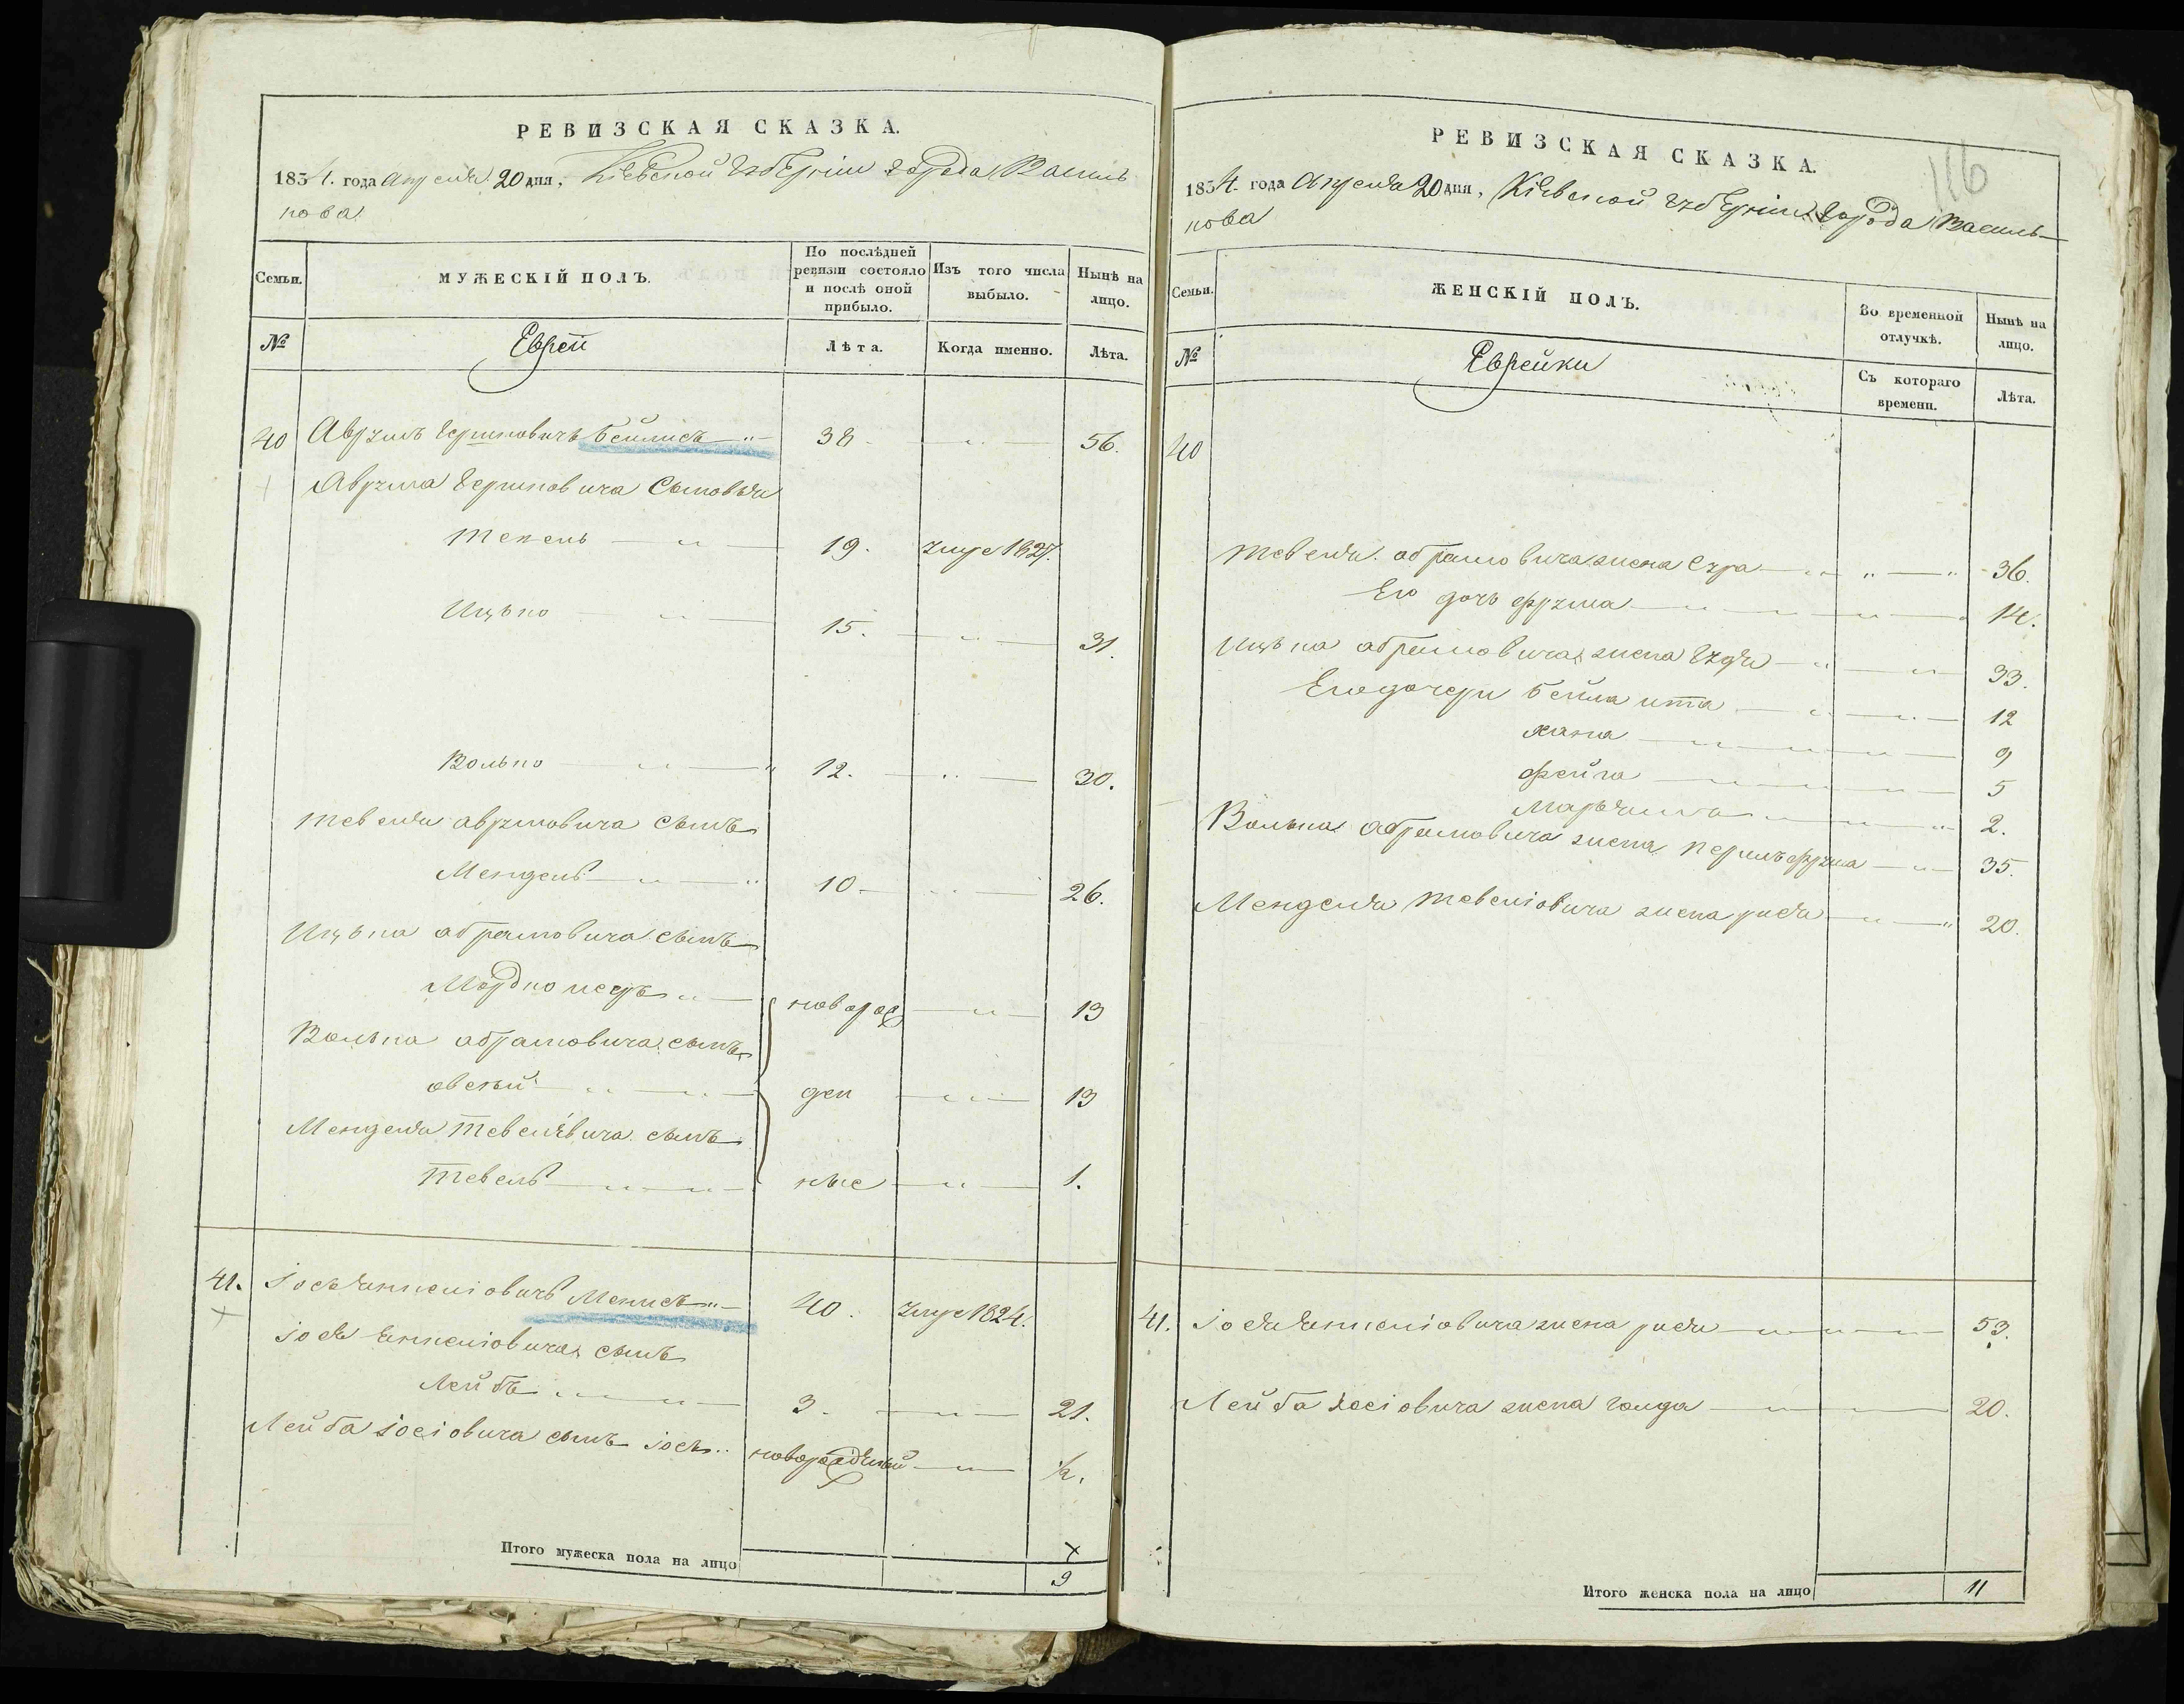 РЕВИЗСКАЯ СКАЗКА.
1834. года Апреля 20 дня, Кіевской губерніи города Василь
кова
Семьи.
МУЖЕСКІЙ ПОЛЪ.
По послѣдней ревизіи состояло и послѣ оной прибыло.
Изъ того числа выбыло.
Нынѣ на лицо.
№
Евреи
Лѣта.
Когда именно.
Лѣта.
40 Аврумъ Гершковичъ Бейлисъ 38 56.
Аврума Гершковича Сыновья
Тевель 19. умре 1827.
Ицько 15. 31.
Волько 12. 30.
Тевеля Аврумовича сынъ
Мендель 10 26.
Ицька абрамовича сынъ
Мордко 13
новорож
Волька абрамовича сынъ
овсѣй 13
ден
Менделя Тевелѣвича сынъ
Тевель 1.
ные
41. Іось Янкеліовичъ Менисъ 40. умре 1824.
Іося Янкеліовича сынъ
Лейба 3. 21.
Лейба Іосіовича сынъ Іось новорожденый ½.
Итого мужеска пола на лицо 9
116
РЕВИЗСКАЯ СКАЗКА.
1834. года Апреля 20 дня, Кіевской губерніи города Василь
кова
Семьи.
ЖЕНСКІЙ ПОЛЪ.
Во временной отлучкѣ.
Нынѣ на лицо.
№
Еврейки
Съ котораго времени.
Лѣта.
40
Тевеля абрамовича жена Сура 36.
Его дочь фрума 14.
Ицька абрамовича жена 33.
Его дочери Бейла ита 12
хана 9
фейга 5
Марьяша 2.
Волька Абрамовича жена Перль фрума 35.
Менделя Тевеліовича жена рися 20.
41. Іося Янкеліовича жена рися 53.
Лейба Іосіовича жена голда 20.
Итого женска пола на лицо 11